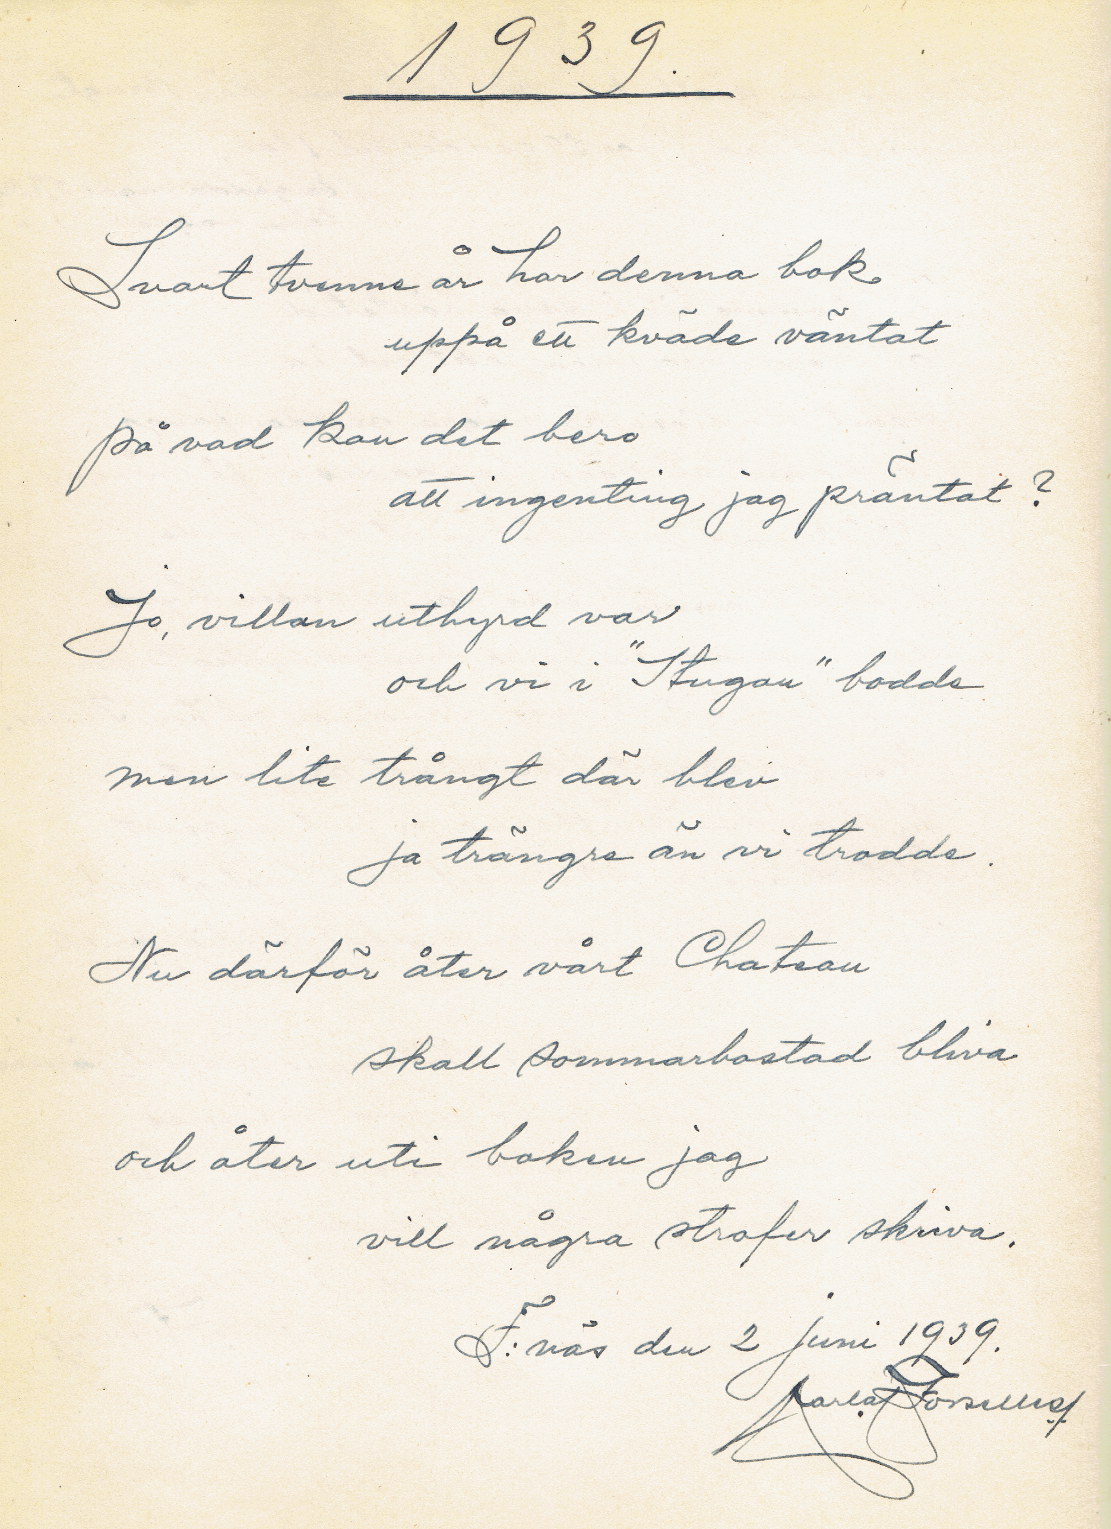 1939.
Snart tvenne år har denna bok
uppå ett kväde väntat
på vad kan det bero
att ingenting jag präntat?
Jo, villan uthyrd var
och vi i "Stugan" bodde
men lite trångt där blev
ja trängre än vi trodde.
Nu därför åter vårt Chateau
skall sommarbostad bliva
och åter uti boken jag
vill några strofer skriva.
F:näs den 2 juni 1939.